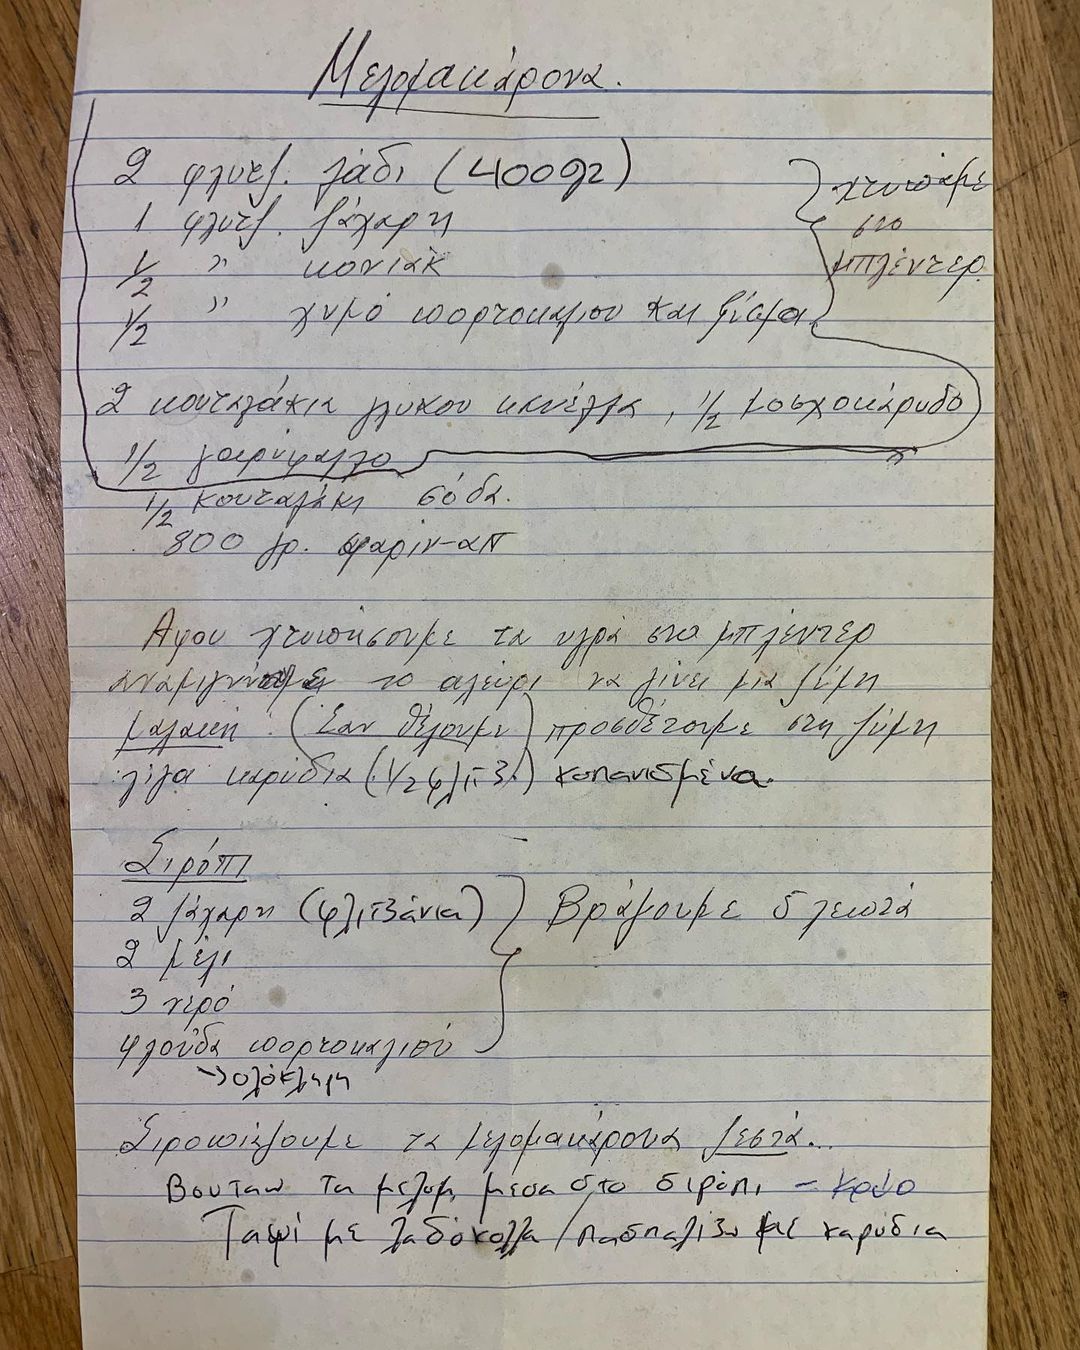 Μελομακάρονα.
2 φλυτζ. λάδι (400gr)
1 φλυτζ. ζάχαρη
1/2 " κονιάκ
1/2 " χυμό πορτοκαλιου και ξίσμα
χτυπάμε
στο
μπλέντερ.
2 κουταλάκια γλυκου καννέλλα, 1/2 μοσχοκάρυδο
1/2 γαρύφαλλο
1/2 κουταλάκι σόδα.
800 γρ. φαρίν-απ
Αφου χτυπήσουμε τα υγρά στο μπλέντερ
αναμιγνύουμε το αλεύρι να γίνει μια ζύμη
μαλακή. (Εαν θέλουμε) προσθέτουμε στη ζύμη
λίγα καρύδια (1/2 φλιτζ.) κοπανισμένα.
Σιρόπι
2 ζάχαρη (φλιτζάνια) Βράζουμε 5 λεπτά
2 μέλι
3 νερό
φλούδα πορτοκαλιού
→ ολόκληρη
Σιροπιάζουμε τα μελομακάρονα ζεστά...
Βουταω τα μελομ. μεσα στο σιρόπι - κρύο
Ταψί με λαδόκολλα / πασπαλιζω με καρύδια